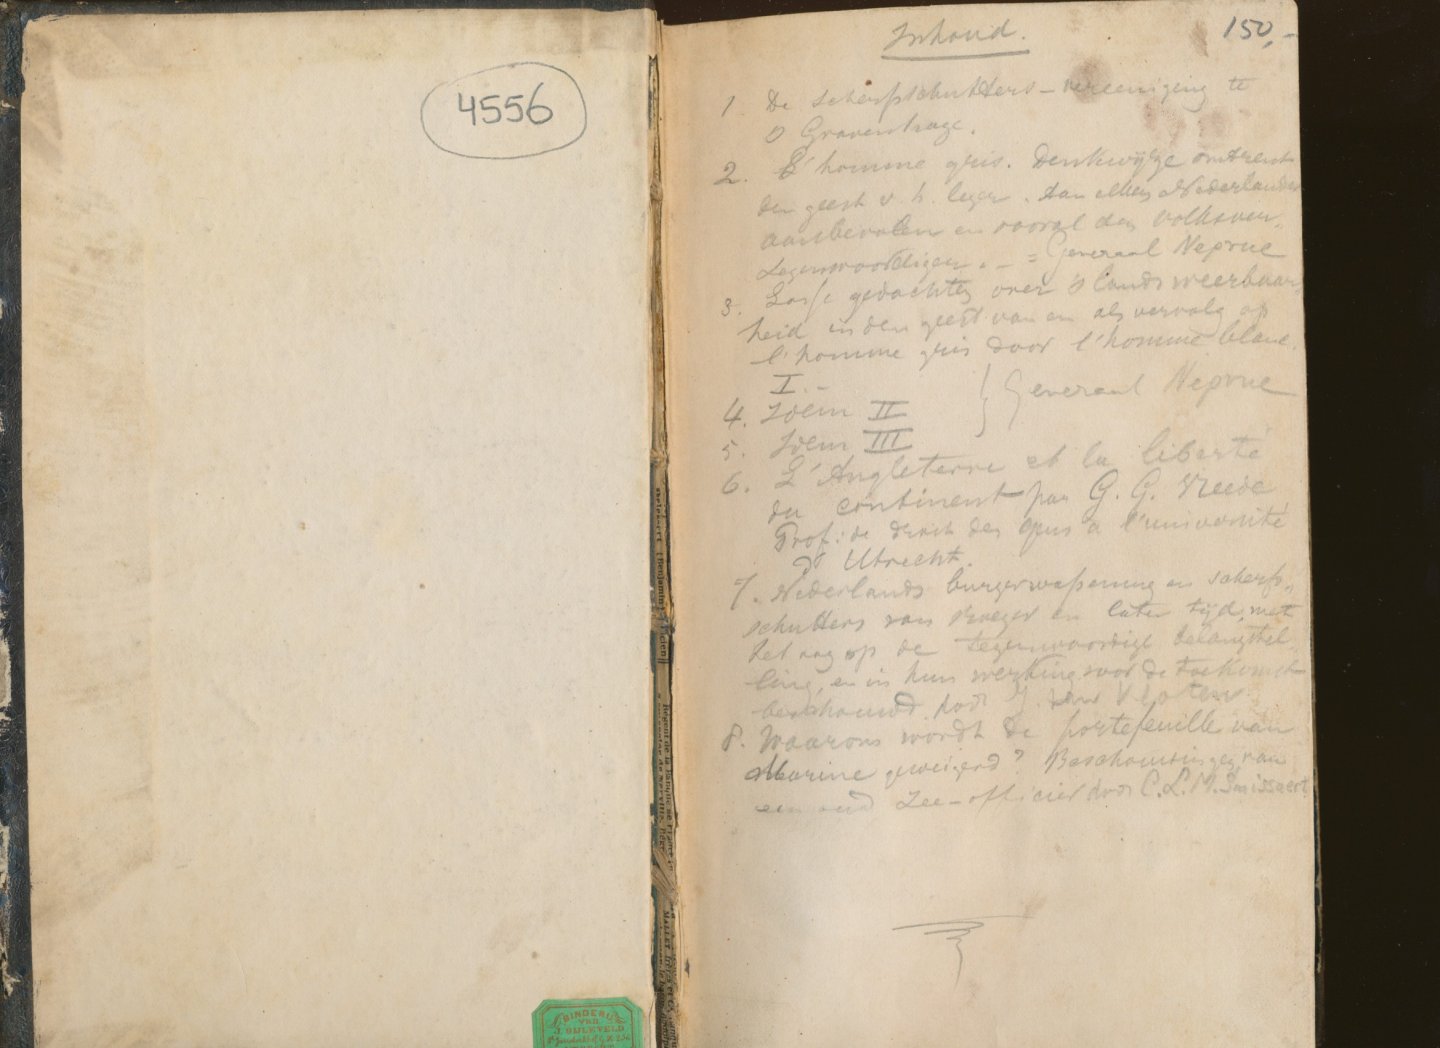 4556
BINDERIJ
VAN
J. BIJLEVELD
150,-
Inhoud.
1. De scherpschutters-vereeniging te
s Gravenhage.
2. L'homme gris. Denkwijze omtrent
den geest v. h. leger. Aan elken Nederlander
aanbevolen en vooral den volksver-
tegenwoordigers. - = Generaal Neprue
3. Losse gedachten over 's lands weerbaar-
heid in den geest van en als vervolg op
l'homme gris door l'homme blanc.
I. -
4. Idem II } Generaal Neprue
5. Idem III
6. L'Angleterre et la liberté
du continent par G. G. Vreede
Prof: de droit des gens à l'université
d' Utrecht.
7. Nederlands burgerwapening en scherp-
schutters van vroeger en later tijd, met
het oog op de tegenwoordige belangstel-
ling, en in hun werking voor de toekomst
beschouwd door J van Vloten
8. Waarom wordt de portefeuille van
Marine geweigerd? Beschouwingen van
een oud Zee-officier door C. L. M. Smissaert
Régent de la Banque de France
MALLET frères et C